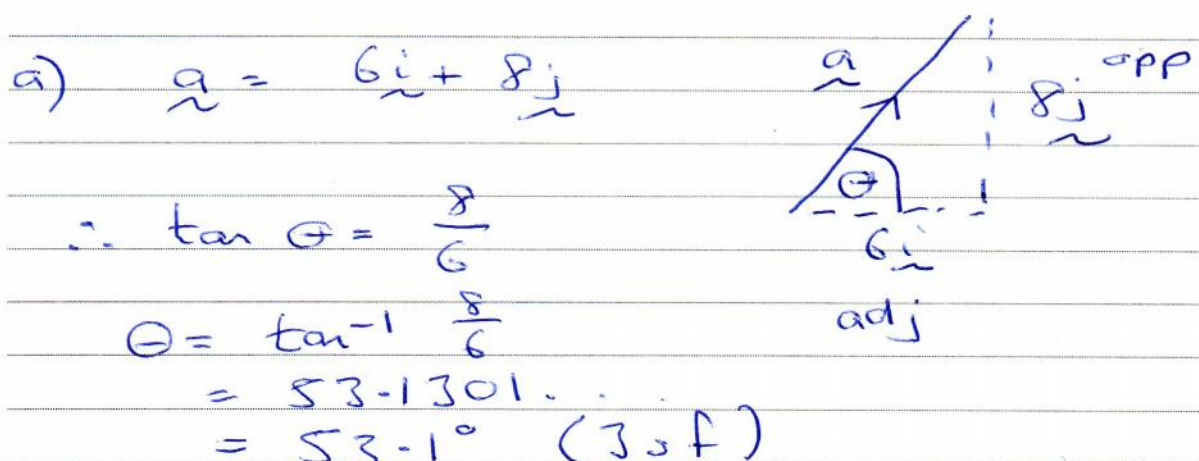 a) a = 6i + 8j
a
8j opp
θ
6i
adj
∴ tan θ = 8/6
θ = tan⁻¹ 8/6
= 53.1301...
= 53.1° (3sf)